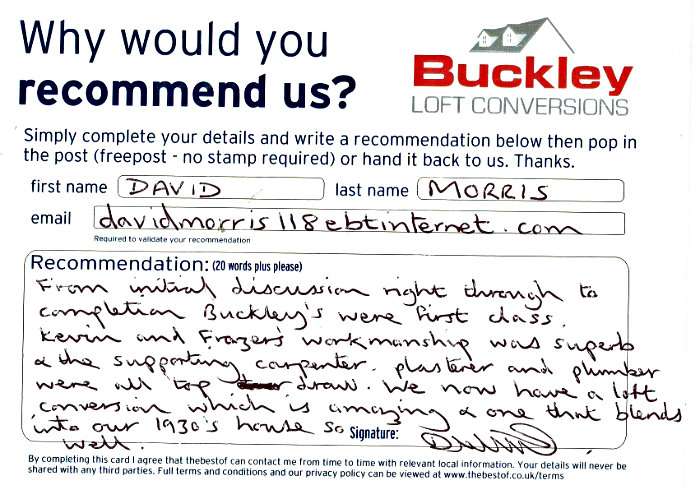 Why would you
recommend us?
Buckley
LOFT CONVERSIONS
Simply complete your details and write a recommendation below then pop in
the post (freepost - no stamp required) or hand it back to us. Thanks.
first name DAVID last name MORRIS
email davidmorris118@btinternet.com
Required to validate your recommendation
Recommendation: (20 words plus please)
From initial discussion right through to
completion Buckley's were first class.
Kevin and Frazer's workmanship was superb
& the supporting carpenter, plasterer and plumber
were all top draw. We now have a loft
conversion which is amazing & one that blends
into our 1930's house so
well.
Signature:
By completing this card I agree that thebestof can contact me from time to time with relevant local information. Your details will never be
shared with any third parties. Full terms and conditions and our privacy policy can be viewed at www.thebestof.co.uk/terms